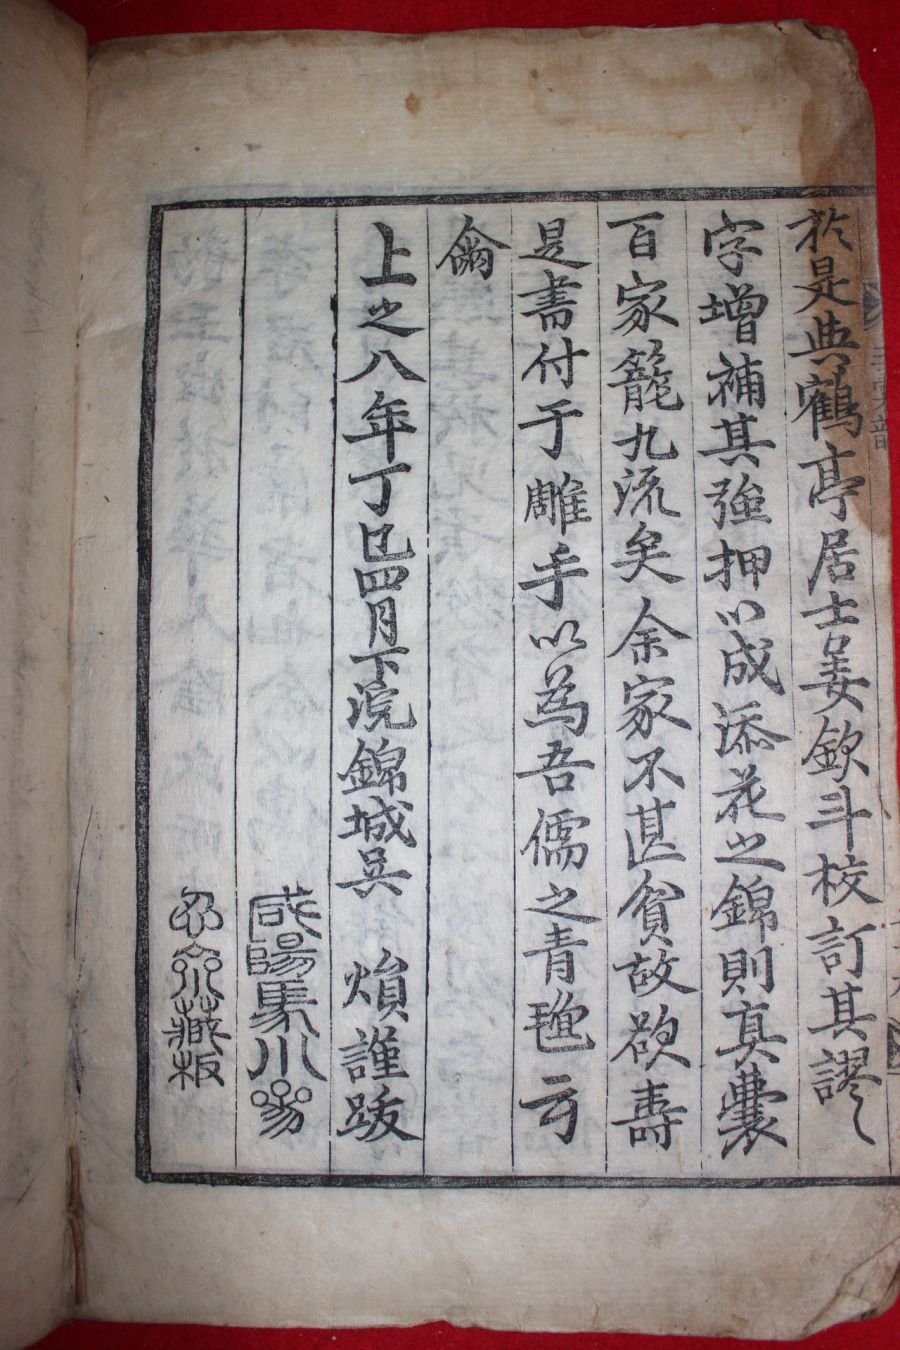 於是與鶴亭居士姜欽斗校訂其謬
字增補其強押以成添花之錦則真囊
百家籠九流矣余家不甚貧故欲壽
是書付于雕手以為吾儒之青氊云
爾
上之八年丁巳四月下浣錦城吳 熉謹跋
咸陽馬川
藏板